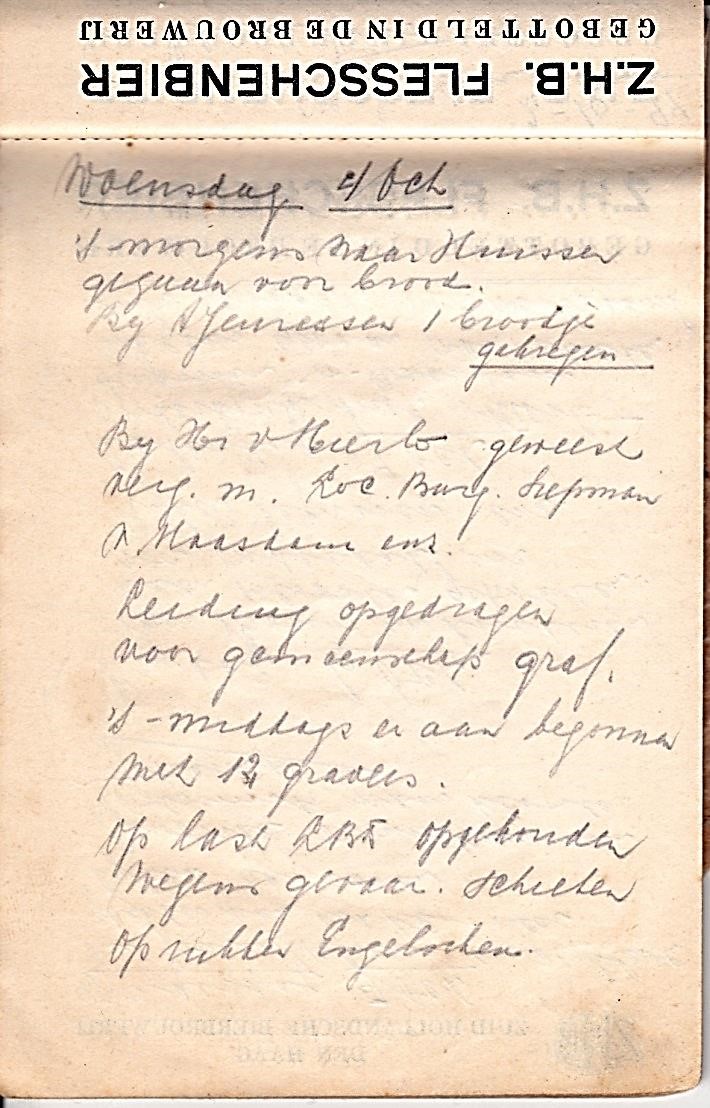 GEBOTTELD IN DE BROUWERIJ
Z.H.B. FLESSCHENBIER
Woensdag 4 Oct
's morgens naar Huissen
gegaan voor brood.
By 1 broodje
gekregen
By Hr v Mierlo geweest
verg. m. Loc. Burg. Siepman
v Maasdam enz.
Leiding opgedragen
voor gemeenschap graf.
's-middags er aan begonnen
met 12 gravers.
Op last opgehouden
wegens gevaar. schieten
oprukken Engelschen.
ZUID HOLLANDSCHE BIERBROUWERIJ
DEN HAAG